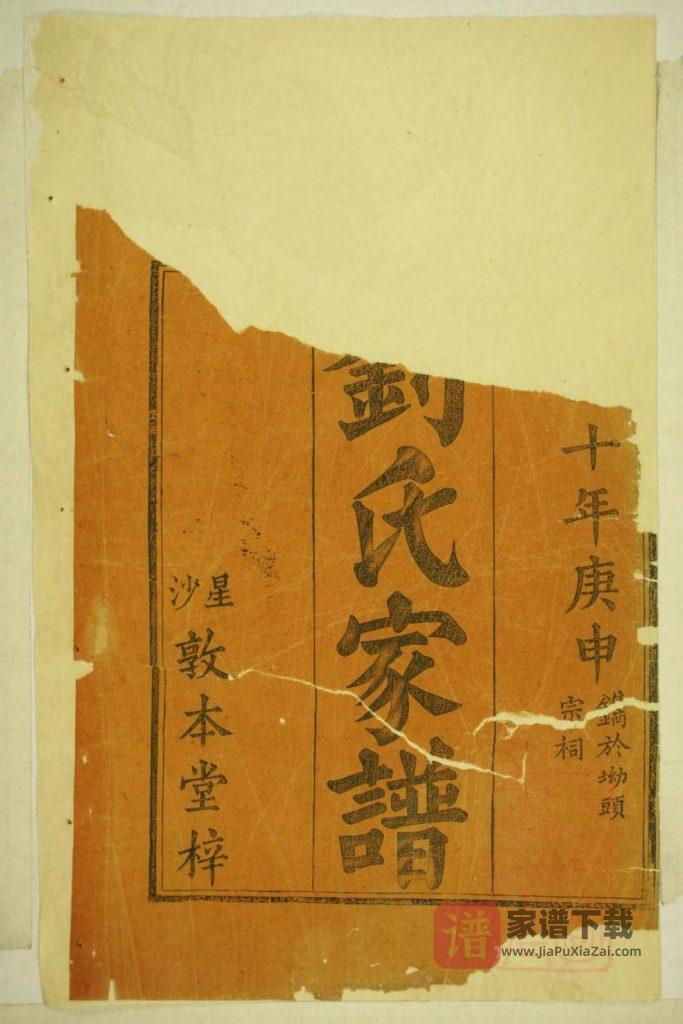 十年庚申
鐫於坳頭
宗祠
劉氏家譜
星沙
敦本堂梓
谱
家谱下载
www.JiaPuXiaZai.com